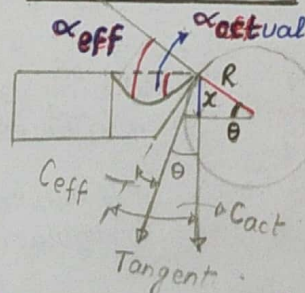 αeff
αactual
R
x
θ
Ceff
θ
Cact
Tangent